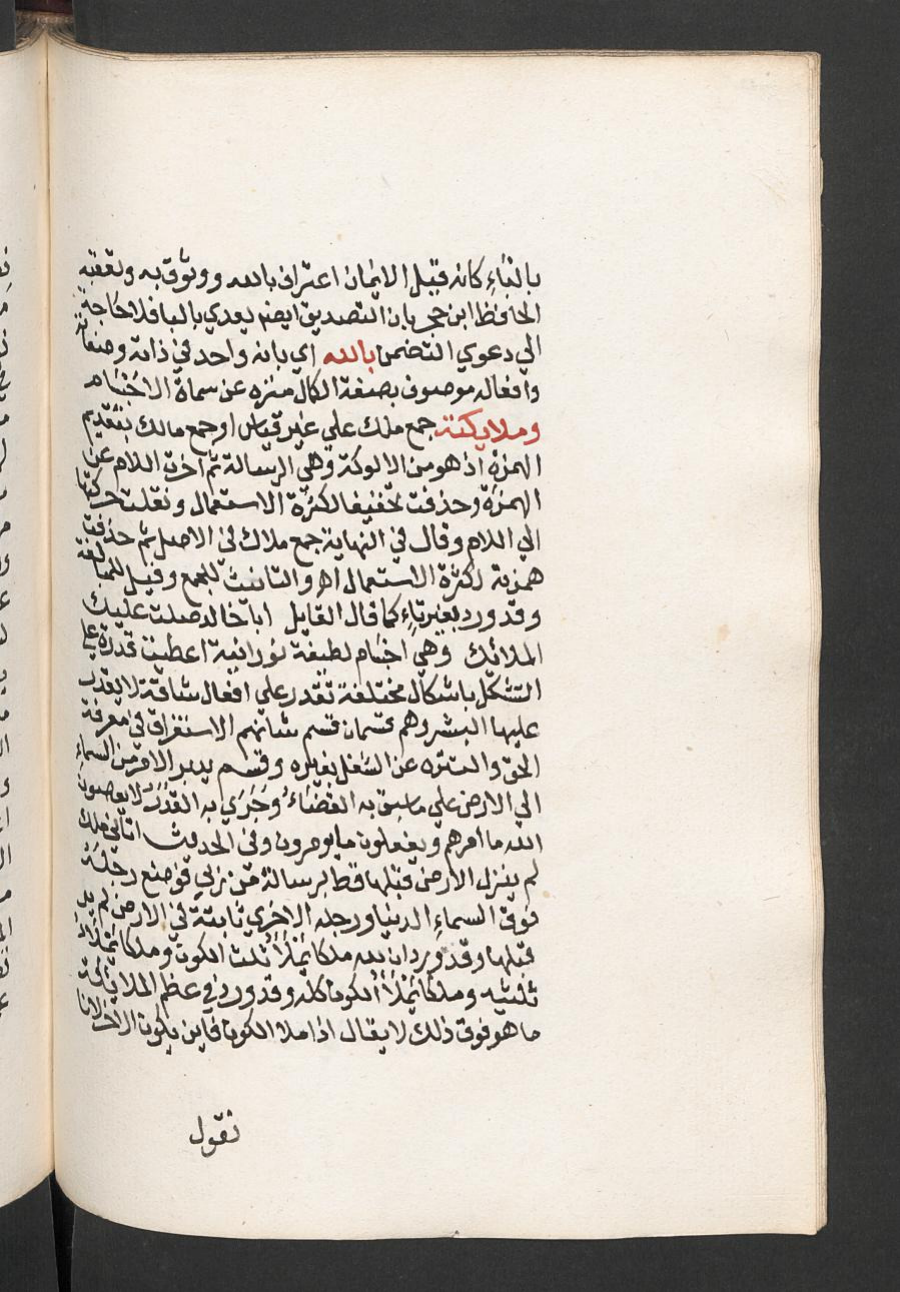 بالباء كانه قيل الايمان اعتراف بالله ووثوق به وتعقبه
الحافظ ابن حجر بان التصديق ايضا يعدي بالبا فلا حاجة
الي دعوي التضمن بالله اي بانه واحد في ذاته وصفاته
وافعاله موصوف بصفة الكمال منزه عن سماة الاجسام
وملايكته جمع ملك علي غير قياس او جمع مالك بتقديم
الهمزة اذ هو من الالوكة وهي الرسالة ثم اخرت اللام عن
الهمزة وحذفت تخفيفا لكثرة الاستعمال ونقلت حركتها
الي اللام وقال في النهاية جمع ملاك في الاصل ثم حذفت
همزته لكثرة الاستعمال اهـ والتانيث للجمع وقيل للمبالغة
وقد ورد بغير تاء كما قال القايل اباخالد صلت عليك
الملائك وهي اجسام لطيفة نورانية اعطيت قدرة علي
التشكل باشكال مختلفة تقدر علي افعال شاقة لا يقدر
عليها البشر وهم قسمان قسم شانهم الاستغراق في معرفة
الحق والتنزه عن الشغل بغيره وقسم يدبر الامر من السماء
الي الارض علي ما سبق به القضاء وجري به القدر لا يعصون
الله ما امرهم ويفعلون ما يومرون وفي الحديث اتاني ملك
لم ينزل الارض قبلها قط برسالة من ربي فوضع رجله
فوق السماء الدنيا ورجله الاخري ثابتة في الارض لم ير
قبلها وقد ورد ان لله ملكا يملأ ثلث الكون وملكا يملأ
ثلثيه وملكا يملأ الكون كله وقد ورد في عظم الملايكة
ما هو فوق ذلك لا يقال اذا ملا الكون فاين يكون الاخر لانا
نقول